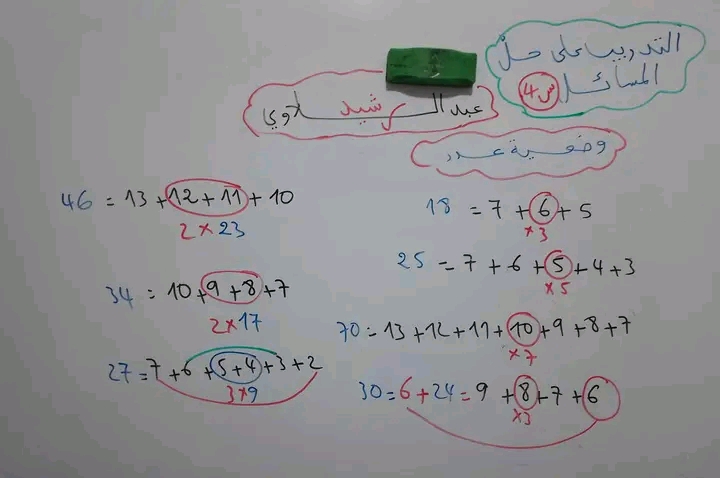 التدريب على حل
المسائل س4
عبد الرشيد لاوي
وضعية عدد
18 = 7 + 6 + 5
×3
25 = 7 + 6 + 5 + 4 + 3
×5
70 = 13 + 12 + 11 + 10 + 9 + 8 + 7
×7
30 = 6 + 24 = 9 + 8 + 7 + 6
×3
46 = 13 + 12 + 11 + 10
2 × 23
34 = 10 + 9 + 8 + 7
2 × 17
27 = 7 + 6 + 5 + 4 + 3 + 2
3 × 9